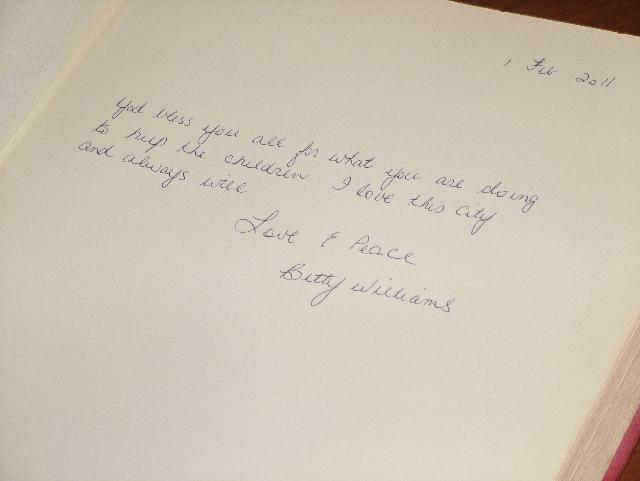 1 Feb 2011
God bless you all for what you are doing
to help the children I love this city
and always will
Love & Peace
Betty Williams